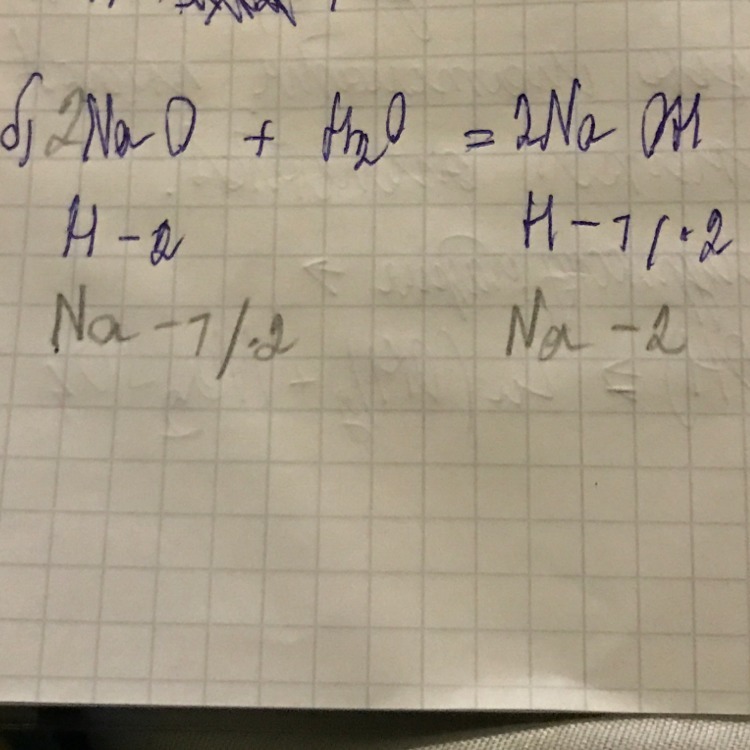 б) 2NaO + H₂O = 2NaOH
H - 2 H - 1 / · 2
Na - 1 / · 2 Na - 2